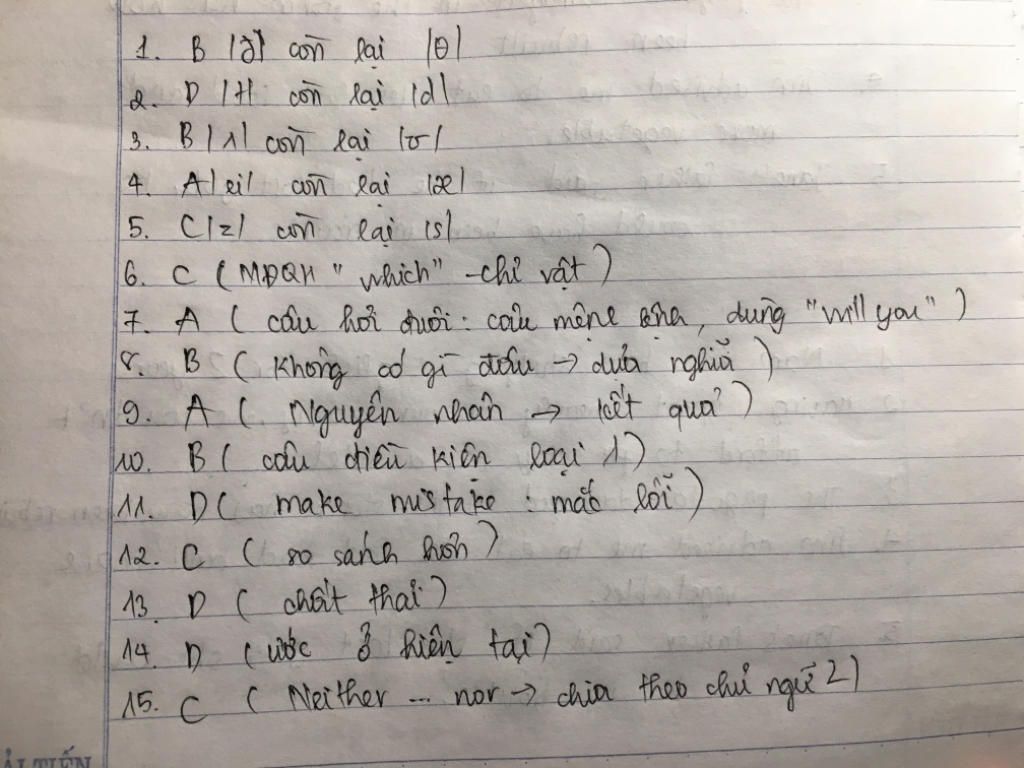 1. B /ð/ còn lại /θ/
2. D /t/ còn lại /d/
3. B /ʌ/ còn lại /ʊ/
4. A /ei/ còn lại /æ/
5. C /z/ còn lại /s/
6. C (MĐQH "which" - chỉ vật)
7. A (câu hỏi đuôi: câu mệnh lệnh, dùng "will you")
8. B (Không có gì đâu → dựa nghĩa)
9. A (Nguyên nhân → kết quả)
10. B (câu điều kiện loại 1)
11. D (make mistake: mắc lỗi)
12. C (so sánh hơn)
13. D (chất thải)
14. D (ước ở hiện tại)
15. C (Neither ... nor → chia theo chủ ngữ 2)
ẢI TIẾN